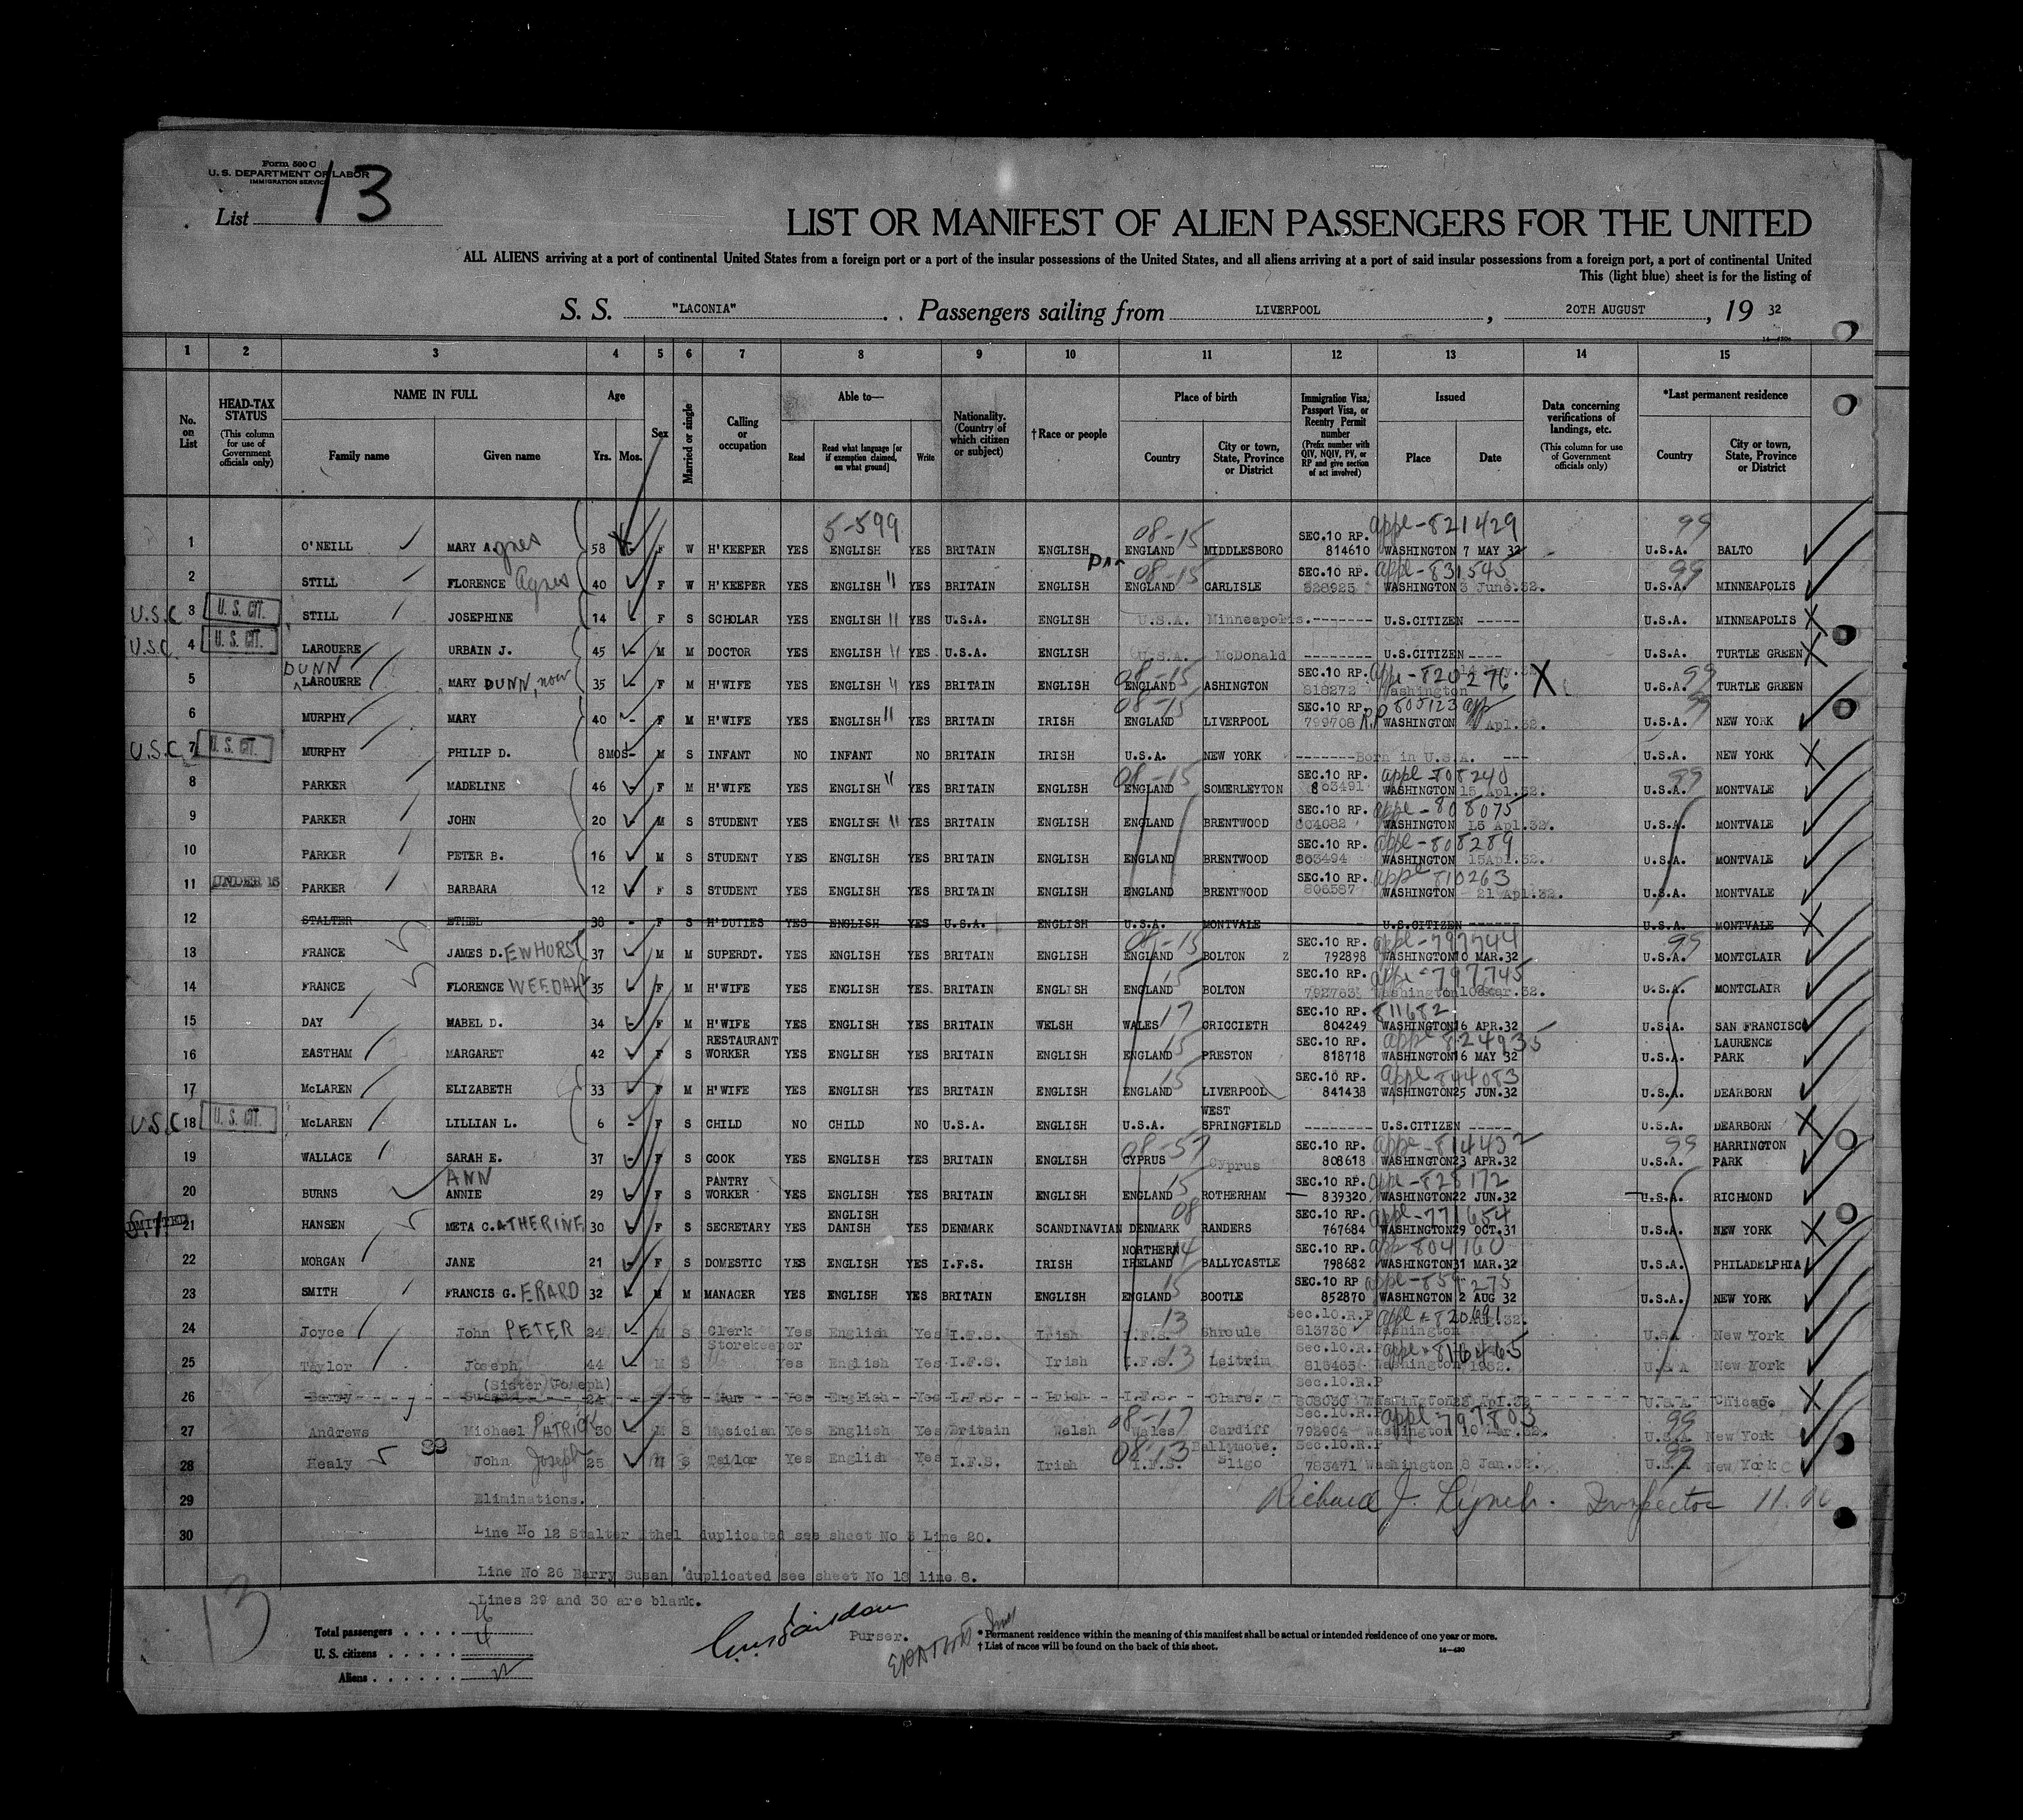 Form 500 C
U. S. DEPARTMENT OF LABOR
IMMIGRATION SERVICE
List 13
LIST OR MANIFEST OF ALIEN PASSENGERS FOR THE UNITED
ALL ALIENS arriving at a port of continental United States from a foreign port or a port of the insular possessions of the United States, and all aliens arriving at a port of said insular possessions from a foreign port, a port of continental United
This (light blue) sheet is for the listing of
S. S. "LACONIA" Passengers sailing from LIVERPOOL, 20TH AUGUST, 19 32
1 2 3 4 5 6 7 8 9 10 11 12 13 14 15
No. on List
HEAD-TAX STATUS (This column for use of Government officials only)
NAME IN FULL Family name Given name
Age Yrs. Mos.
Sex
Married or single
Calling or occupation
Able to— Read Read what language [or if exemption claimed, on what ground] Write
Nationality. (Country of which citizen or subject)
†Race or people
Place of birth Country City or town, State, Province or District
Immigration Visa, Passport Visa, or Reentry Permit number (Prefix number with QIV, NQIV, PV, or RP and give section of act involved)
Issued Place Date
Data concerning verifications of landings, etc. (This column for use of Government officials only)
*Last permanent residence Country City or town, State, Province or District
5-599
1 O'NEILL MARY Agnes 58 F W H'KEEPER YES ENGLISH YES BRITAIN ENGLISH 08-15 ENGLAND MIDDLESBORO SEC.10 RP. 814610 appl-821429 WASHINGTON 7 MAY 32 99 U.S.A. BALTO
2 STILL FLORENCE Agnes 40 F W H'KEEPER YES ENGLISH " YES BRITAIN ENGLISH 08-15 ENGLAND CARLISLE SEC.10 RP. 828925 appl-831545 WASHINGTON 3 June.32. 99 U.S.A. MINNEAPOLIS
U.S.C 3 U. S. CIT. STILL JOSEPHINE 14 F S SCHOLAR YES ENGLISH " YES U.S.A. ENGLISH U.S.A. Minneapolis. ------- U.S.CITIZEN ----- U.S.A. MINNEAPOLIS X
U.S.C. 4 U. S. CIT. LAROUERE URBAIN J. 45 M M DOCTOR YES ENGLISH " YES U.S.A. ENGLISH U.S.A. McDonald -------- U.S.CITIZEN ---- U.S.A. TURTLE GREEN X
5 DUNN LAROUERE MARY DUNN, now 35 F M H'WIFE YES ENGLISH " YES BRITAIN ENGLISH 08-15 ENGLAND ASHINGTON SEC.10 RP. 818272 appl-820276 Washington X 99 U.S.A. TURTLE GREEN
6 MURPHY MARY 40 - F M H'WIFE YES ENGLISH " YES BRITAIN IRISH 08-15 ENGLAND LIVERPOOL SEC.10 RP. 799708 R.P 800123 WASHINGTON Apl.32. U.S.A. NEW YORK
U.S.C. 7 U. S. CIT. MURPHY PHILIP D. 8MOS- M S INFANT NO INFANT NO BRITAIN IRISH U.S.A. NEW YORK -------Born in U.S.A. --- U.S.A. NEW YORK X
8 PARKER MADELINE 46 F M H'WIFE YES ENGLISH " YES BRITAIN ENGLISH 08-15 ENGLAND SOMERLEYTON SEC.10 RP. 803491 appl-808240 WASHINGTON 15 Apl.32. 99 U.S.A. MONTVALE
9 PARKER JOHN 20 M S STUDENT YES ENGLISH " YES BRITAIN ENGLISH ENGLAND BRENTWOOD SEC.10 RP. 804082 appl-808075 WASHINGTON 15 Apl.32. U.S.A. MONTVALE
10 PARKER PETER B. 16 M S STUDENT YES ENGLISH YES BRITAIN ENGLISH ENGLAND BRENTWOOD SEC.10 RP. 803494 appl-808289 WASHINGTON 15Apl.32. U.S.A. MONTVALE
11 UNDER 16 PARKER BARBARA 12 F S STUDENT YES ENGLISH YES BRITAIN ENGLISH ENGLAND BRENTWOOD SEC.10 RP. 806587 appl 810263 WASHINGTON 21 Apl.32. U.S.A. MONTVALE
12 STALTER ETHEL 38 - F S H'DUTIES YES ENGLISH YES U.S.A. ENGLISH U.S.A. MONTVALE U.S.CITIZEN ------ U.S.A. MONTVALE X
13 FRANCE JAMES D.EWHURST 37 M M SUPERDT. YES ENGLISH YES BRITAIN ENGLISH 08-15 ENGLAND BOLTON Z SEC.10 RP. 792898 appl-797744 WASHINGTON10 MAR.32 99 U.S.A. MONTCLAIR
14 FRANCE FLORENCE WEEDALL 35 F M H'WIFE YES ENGLISH YES. BRITAIN ENGLISH 15 ENGLAND BOLTON SEC.10 RP. 792763 appl-797745 Washington10Mar.32. U.S.A. MONTCLAIR
15 DAY MABEL D. 34 F M H'WIFE YES ENGLISH YES BRITAIN WELSH WALES 17 CRICCIETH SEC.10 RP. 804249 811682 WASHINGTON16 APR.32 U.S.A. SAN FRANCISCO
16 EASTHAM MARGARET 42 F S RESTAURANT WORKER YES ENGLISH YES BRITAIN ENGLISH 15 ENGLAND PRESTON SEC.10 RP. 818718 appl 824935 WASHINGTON16 MAY 32 U.S.A. LAURENCE PARK
17 McLAREN ELIZABETH 33 F M H'WIFE YES ENGLISH YES BRITAIN ENGLISH 15 ENGLAND LIVERPOOL SEC.10 RP. 841438 appl 844083 WASHINGTON25 JUN.32 U.S.A. DEARBORN
U.S.C 18 U. S. CIT. McLAREN LILLIAN L. 6 - F S CHILD NO CHILD NO U.S.A. ENGLISH U.S.A. WEST SPRINGFIELD -------- U.S.CITIZEN ----- U.S.A. DEARBORN X
19 WALLACE SARAH E. 37 F S COOK YES ENGLISH YES BRITAIN ENGLISH 08-57 CYPRUS Cyprus SEC.10 RP. 808618 appl-814432 WASHINGTON23 APR.32 99 U.S.A. HARRINGTON PARK
20 BURNS ANN ANNIE 29 F S PANTRY WORKER YES ENGLISH YES BRITAIN ENGLISH 15 ENGLAND ROTHERHAM SEC.10 RP. 839320 appl-828172 WASHINGTON22 JUN.32 U.S.A. RICHMOND
S.I. 21 HANSEN META C.ATHERINE 30 F S SECRETARY YES ENGLISH DANISH YES DENMARK SCANDINAVIAN 08 DENMARK RANDERS SEC.10 RP. 767684 appl-771654 WASHINGTON29 OCT.31 U.S.A. NEW YORK X
22 MORGAN JANE 21 F S DOMESTIC YES ENGLISH YES I.F.S. IRISH NORTHERN IRELAND 14 BALLYCASTLE SEC.10 RP. 798682 appl 804160 WASHINGTON31 MAR.32 U.S.A. PHILADELPHIA
23 SMITH FRANCIS G.ERARD 32 M M MANAGER YES ENGLISH YES BRITAIN ENGLISH 15 ENGLAND BOOTLE SEC.10 RP 852870 appl-859275 WASHINGTON 2 AUG 32 U.S.A. NEW YORK
24 Joyce John PETER 24 - M S Clerk Yes English Yes I.F.S. Irish 13 I.F.S. Shrule Sec.10.R.P 813730 appl 820691 Washington U.S.A New York
25 Taylor Joseph 44 - M S Storekeeper Yes English Yes I.F.S. Irish 13 I.F.S. Leitrim Sec.10.R.P 813465 appl 816465 Washington 1932. U.S.A New York
26 Barry Susan (Sister Joseph) 24 F S Nun Yes English Yes I.F.S. Irish I.F.S. Clare. Sec.10.R.P Washington Apl.32 U.S.A Chicago X
27 Andrews Michael PATRICK 30 M S Musician Yes English Yes Britain Welsh 08-17 Wales Cardiff Sec.10.R.P 792904 appl 797803 Washington 10 Mar.32. 99 U.S.A New York
28 Healy John Joseph 25 M S Tailor Yes English Yes I.F.S. Irish 08-13 I.F.S. Ballymote. Sligo Sec.10.R.P 783471 Washington 8 Jan.32. 99 U.S.A New York
29 Eliminations. Richard J. Lynch. Inspector
30 Line No 12 Stalter Ethel duplicated see sheet No 3 Line 20.
Line No 26 Barry Susan duplicated see sheet No 18 line 8.
Lines 29 and 30 are blank.
13
Total passengers
U. S. citizens
Aliens
Purser.
* Permanent residence within the meaning of this manifest shall be actual or intended residence of one year or more.
† List of races will be found on the back of this sheet.
14—430